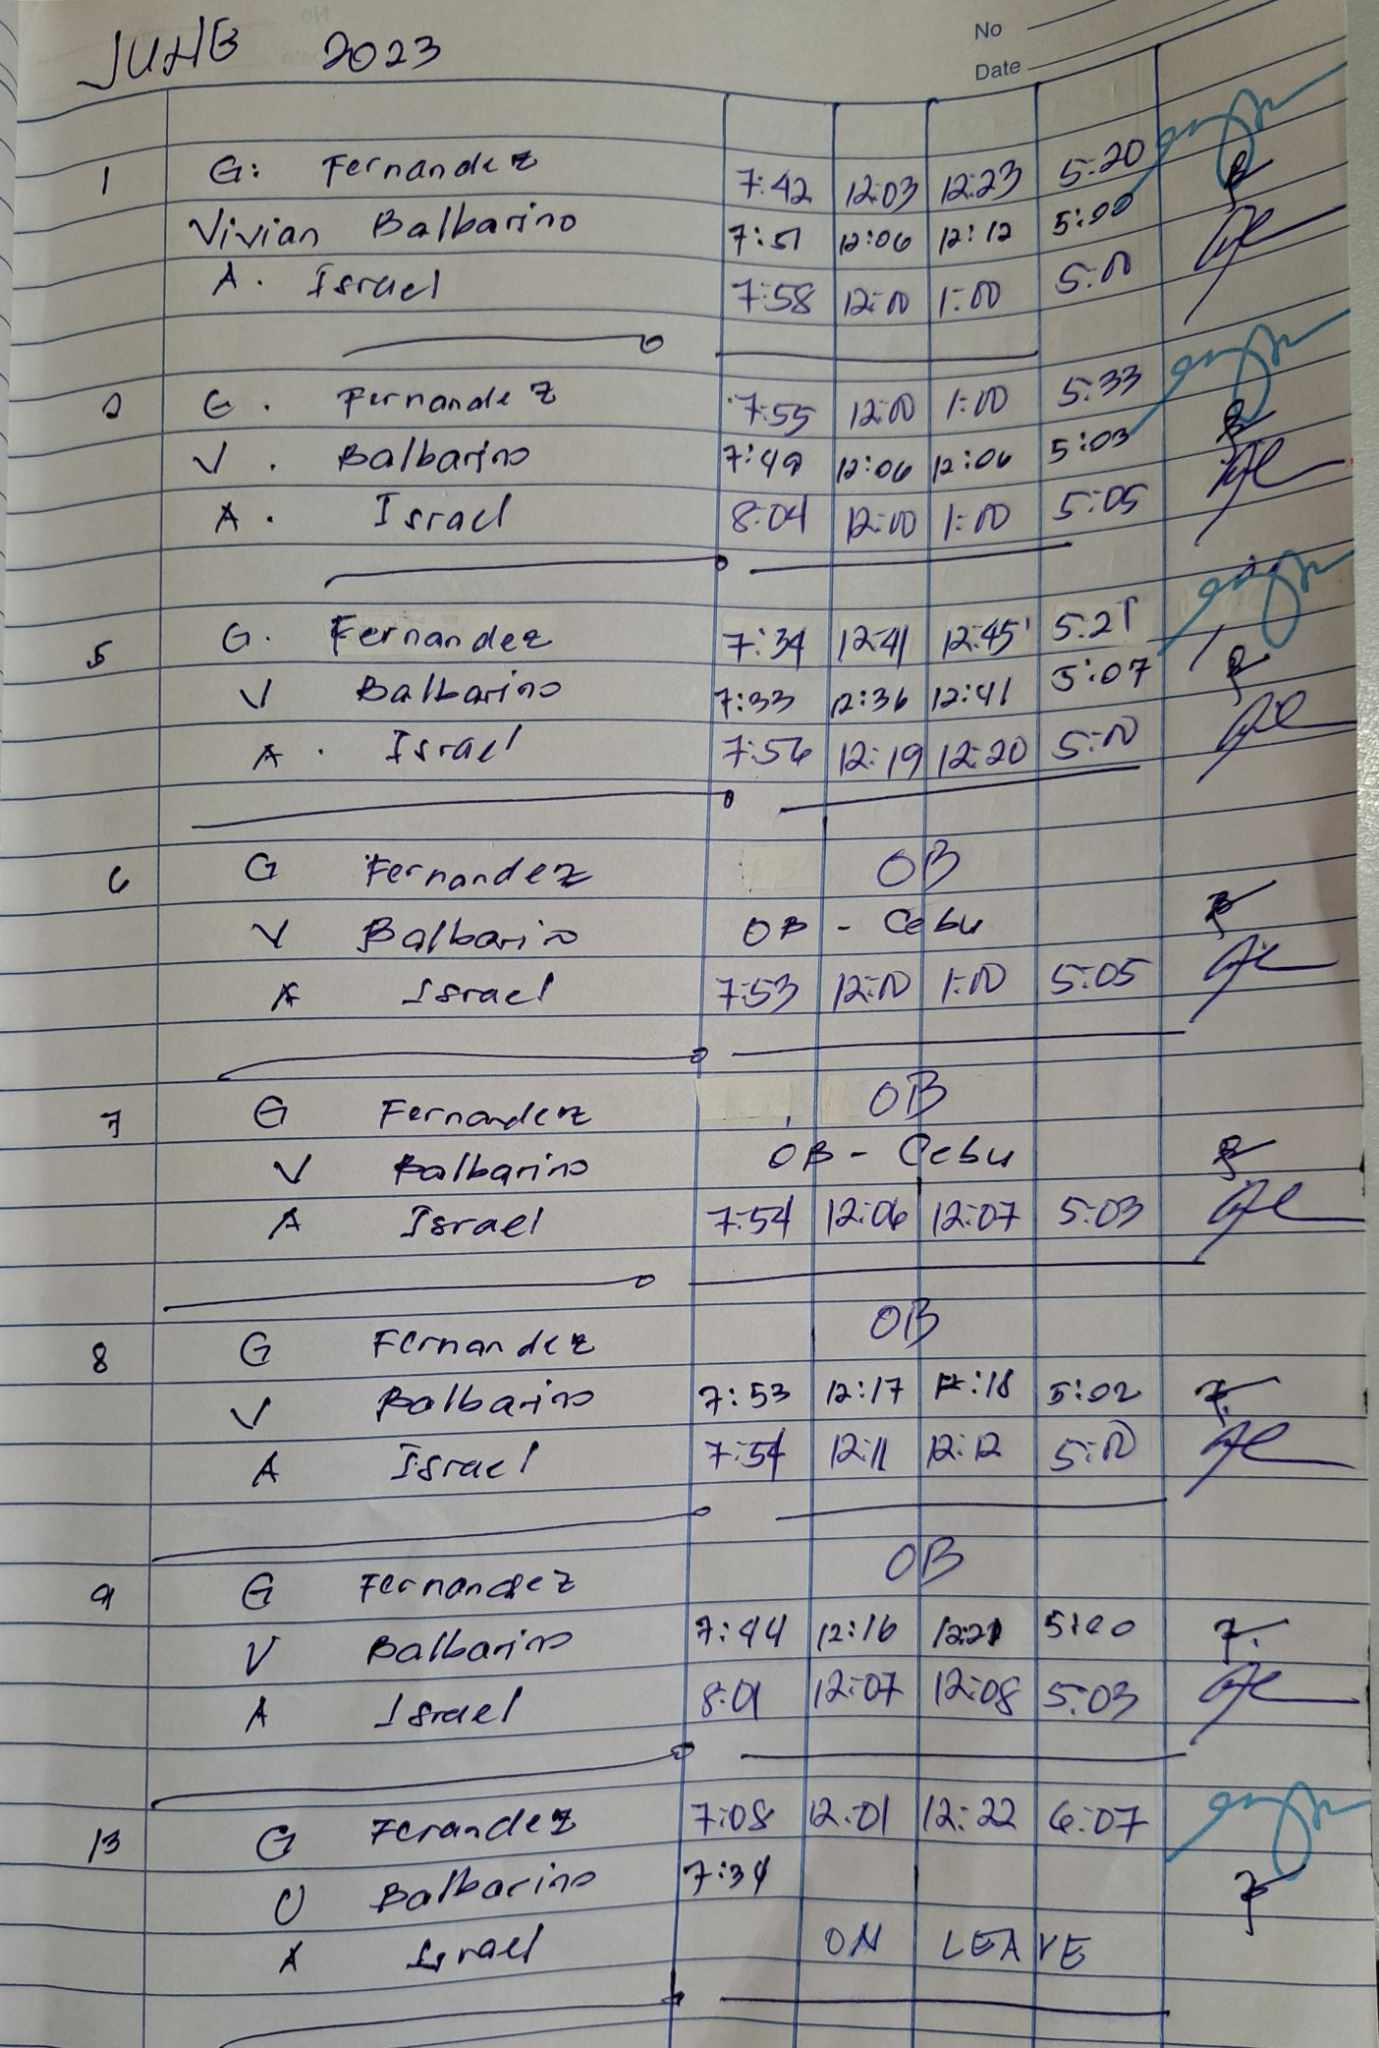 No
JUNE 2023
Date
1 G. Fernandez 7:42 12:03 12:23 5:20
Vivian Balbarino 7:51 12:06 12:12 5:00
A. Israel 7:58 12:00 1:00 5:00
2 G. Fernandez 7:55 12:00 1:00 5:33
V. Balbarino 7:49 12:06 12:06 5:03
A. Israel 8:04 12:00 1:00 5:05
5 G. Fernandez 7:34 12:41 12:45 5:21
V Balbarino 7:33 12:36 12:41 5:07
A. Israel 7:56 12:19 12:20 5:00
6 G Fernandez OB
V Balbarino OB - Cebu
A Israel 7:53 12:00 1:00 5:05
7 G Fernandez OB
V Balbarino OB - Cebu
A Israel 7:54 12:06 12:07 5:03
8 G Fernandez OB
V Balbarino 7:53 12:17 12:18 5:02
A Israel 7:54 12:11 12:12 5:00
9 G Fernandez OB
V Balbarino 7:44 12:16 12:21 5:00
A Israel 8:01 12:07 12:08 5:03
13 G Ferandez 7:08 12:01 12:22 6:07
V Balbarino 7:34
A Israel ON LEAVE